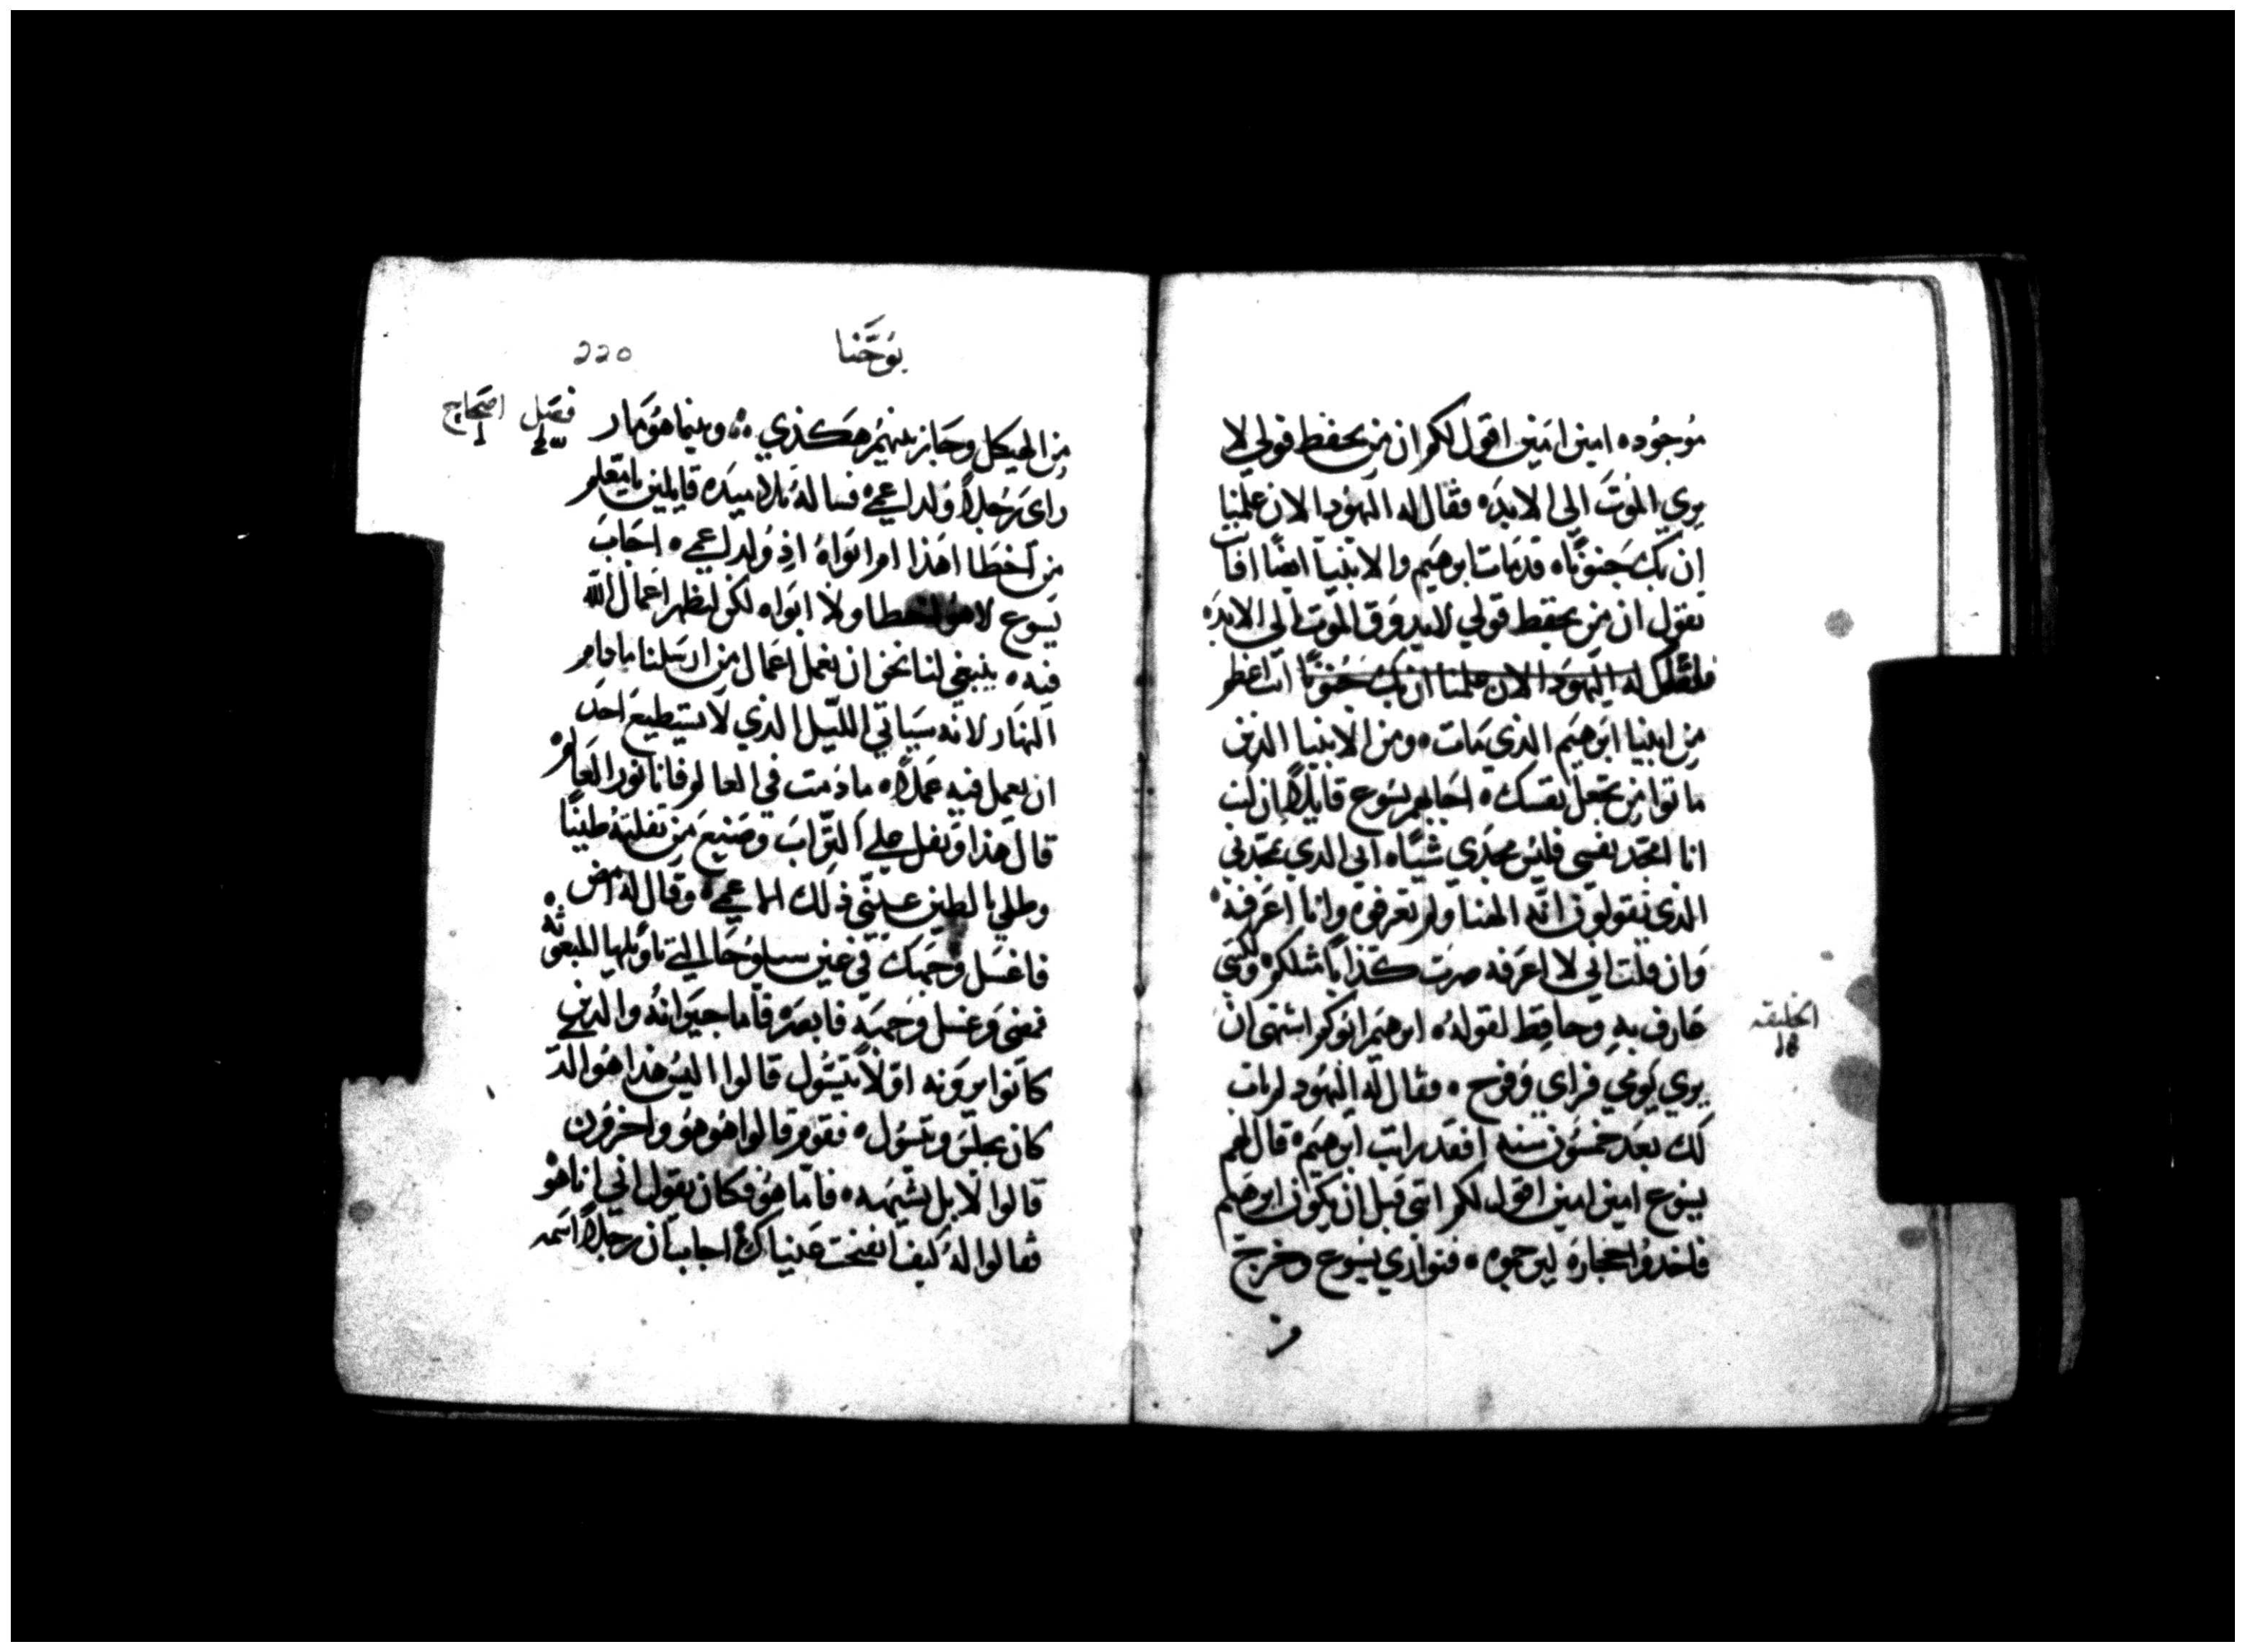 موجوده امين امين اقول لكم ان من يحفظ قولي لا
يري الموت الي الابد ه فقال له اليهود الان علمنا
ان بك جنونًا ه قد مات ابرهيم والانبيا ايضًا افانت
تقول ان من يحفظ قولي لا يدوق الموت الي الابد ه
فقال له اليهود الان علمنا ان بك جنونًا انت اعظم
من ابينا ابرهيم الذي مات ه ومن الانبيا الذين
ماتوا من تجعل نفسك ه اجابهم يسوع قايلًا ان كنت
انا امجد نفسي فليس مجدي شيًا ه ابي الدي يمجدني
الذي تقولون انه الهنا ولم تعرفوه وانا اعرفه ه
وان قلت اني لا اعرفه صرت كذابًا مثلكم ه ولكني
عارف به وحافظ لقوله ه ابرهيم ابوكم اشتهى ان
يري يومي فراي وفرح ه فقال له اليهود لم يات
لك بعد خمسون سنه افقد رايت ابرهيم ه قال لهم
يسوع امين امين اقول لكم انني قبل ان يكون ابرهيم
فاخدوا حجاره ليرجموه ه فتوادي يسوع وخرج
الخليقه
يوحنا
220
فصل اصحاح
من الهيكل وجاز بينهم هكذي ه وبينما هو مار
راى رجلًا ولد اعمى ه فساله تلاميده قايلين يا معلم
من اخطا اهذا ام ابواه اذ ولد اعمى ه اجاب
يسوع لا هو اخطا ولا ابواه لكن ليظهر اعمال الله
فيه ه ينبغي لنا نحن ان نعمل اعمال من ارسلنا ما دام
النهار لانه سياتي الليل الذي لا يستطيع احد
ان يعمل فيه عملًا ه ما دمت في العالم فانا نور العالم ه
قال هذا وتفل على التراب وصنع من تفلته طينًا
وطلي بالطين عينّي ذلك الاعمى ه وقال له امض
فاغسل وجهك في عين سيلوحا التي تاويلها المبعوثه ه
فمضى وغسل وجهه فابصر ه فاما جيرانه والدين
كانوا يرونه اولًا يتسول قالوا اليس هذا هو الد
كان يجلس ويتسول ه فقوم قالوا هو هو واخرون
قالوا لا بل يشبهه ه فاما هو فكان يقول اني انا هو
فقالوا له كيف انفتحت عيناك ه اجاب ان رجلًا اسمه